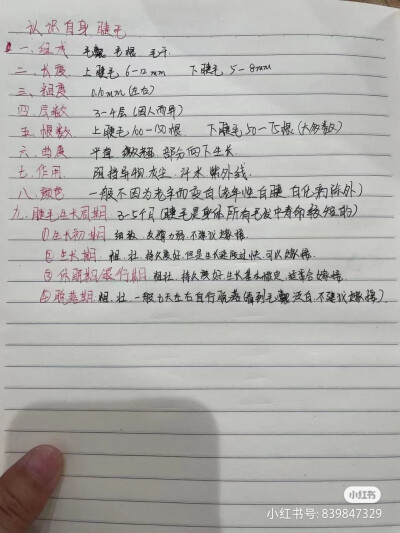 认识自身睫毛
一、组成 毛囊 毛根 毛干
二、长度 上睫毛6-12mm 下睫毛5-8mm
三、粗度 (左右)
四、层数 3-4层(因人而异)
五、根数 上睫毛100-150根 下睫毛50-75根(大多数)
六、曲度 平直 微卷翘 部分向下生长
七、作用 阻挡异物 灰尘 汗水 紫外线
八、颜色 一般不因为老年而变白(老年性白睫 白化病除外)
九、睫毛生长周期 3-5个月(睫毛是身体所有毛发中寿命较短的)
①生长初期 细软 支撑力弱 不建议嫁接
②生长期 粗 壮 持久度好 但是生长速度过快 可以嫁接
③休眠期/退行期 粗壮 持久度好 生长基本稳定 适宜合嫁接
④脱落期 粗、壮 一般 天左右自行脱落(看到毛囊泛白 不建议嫁接)
小红书
小红书号: 839847329